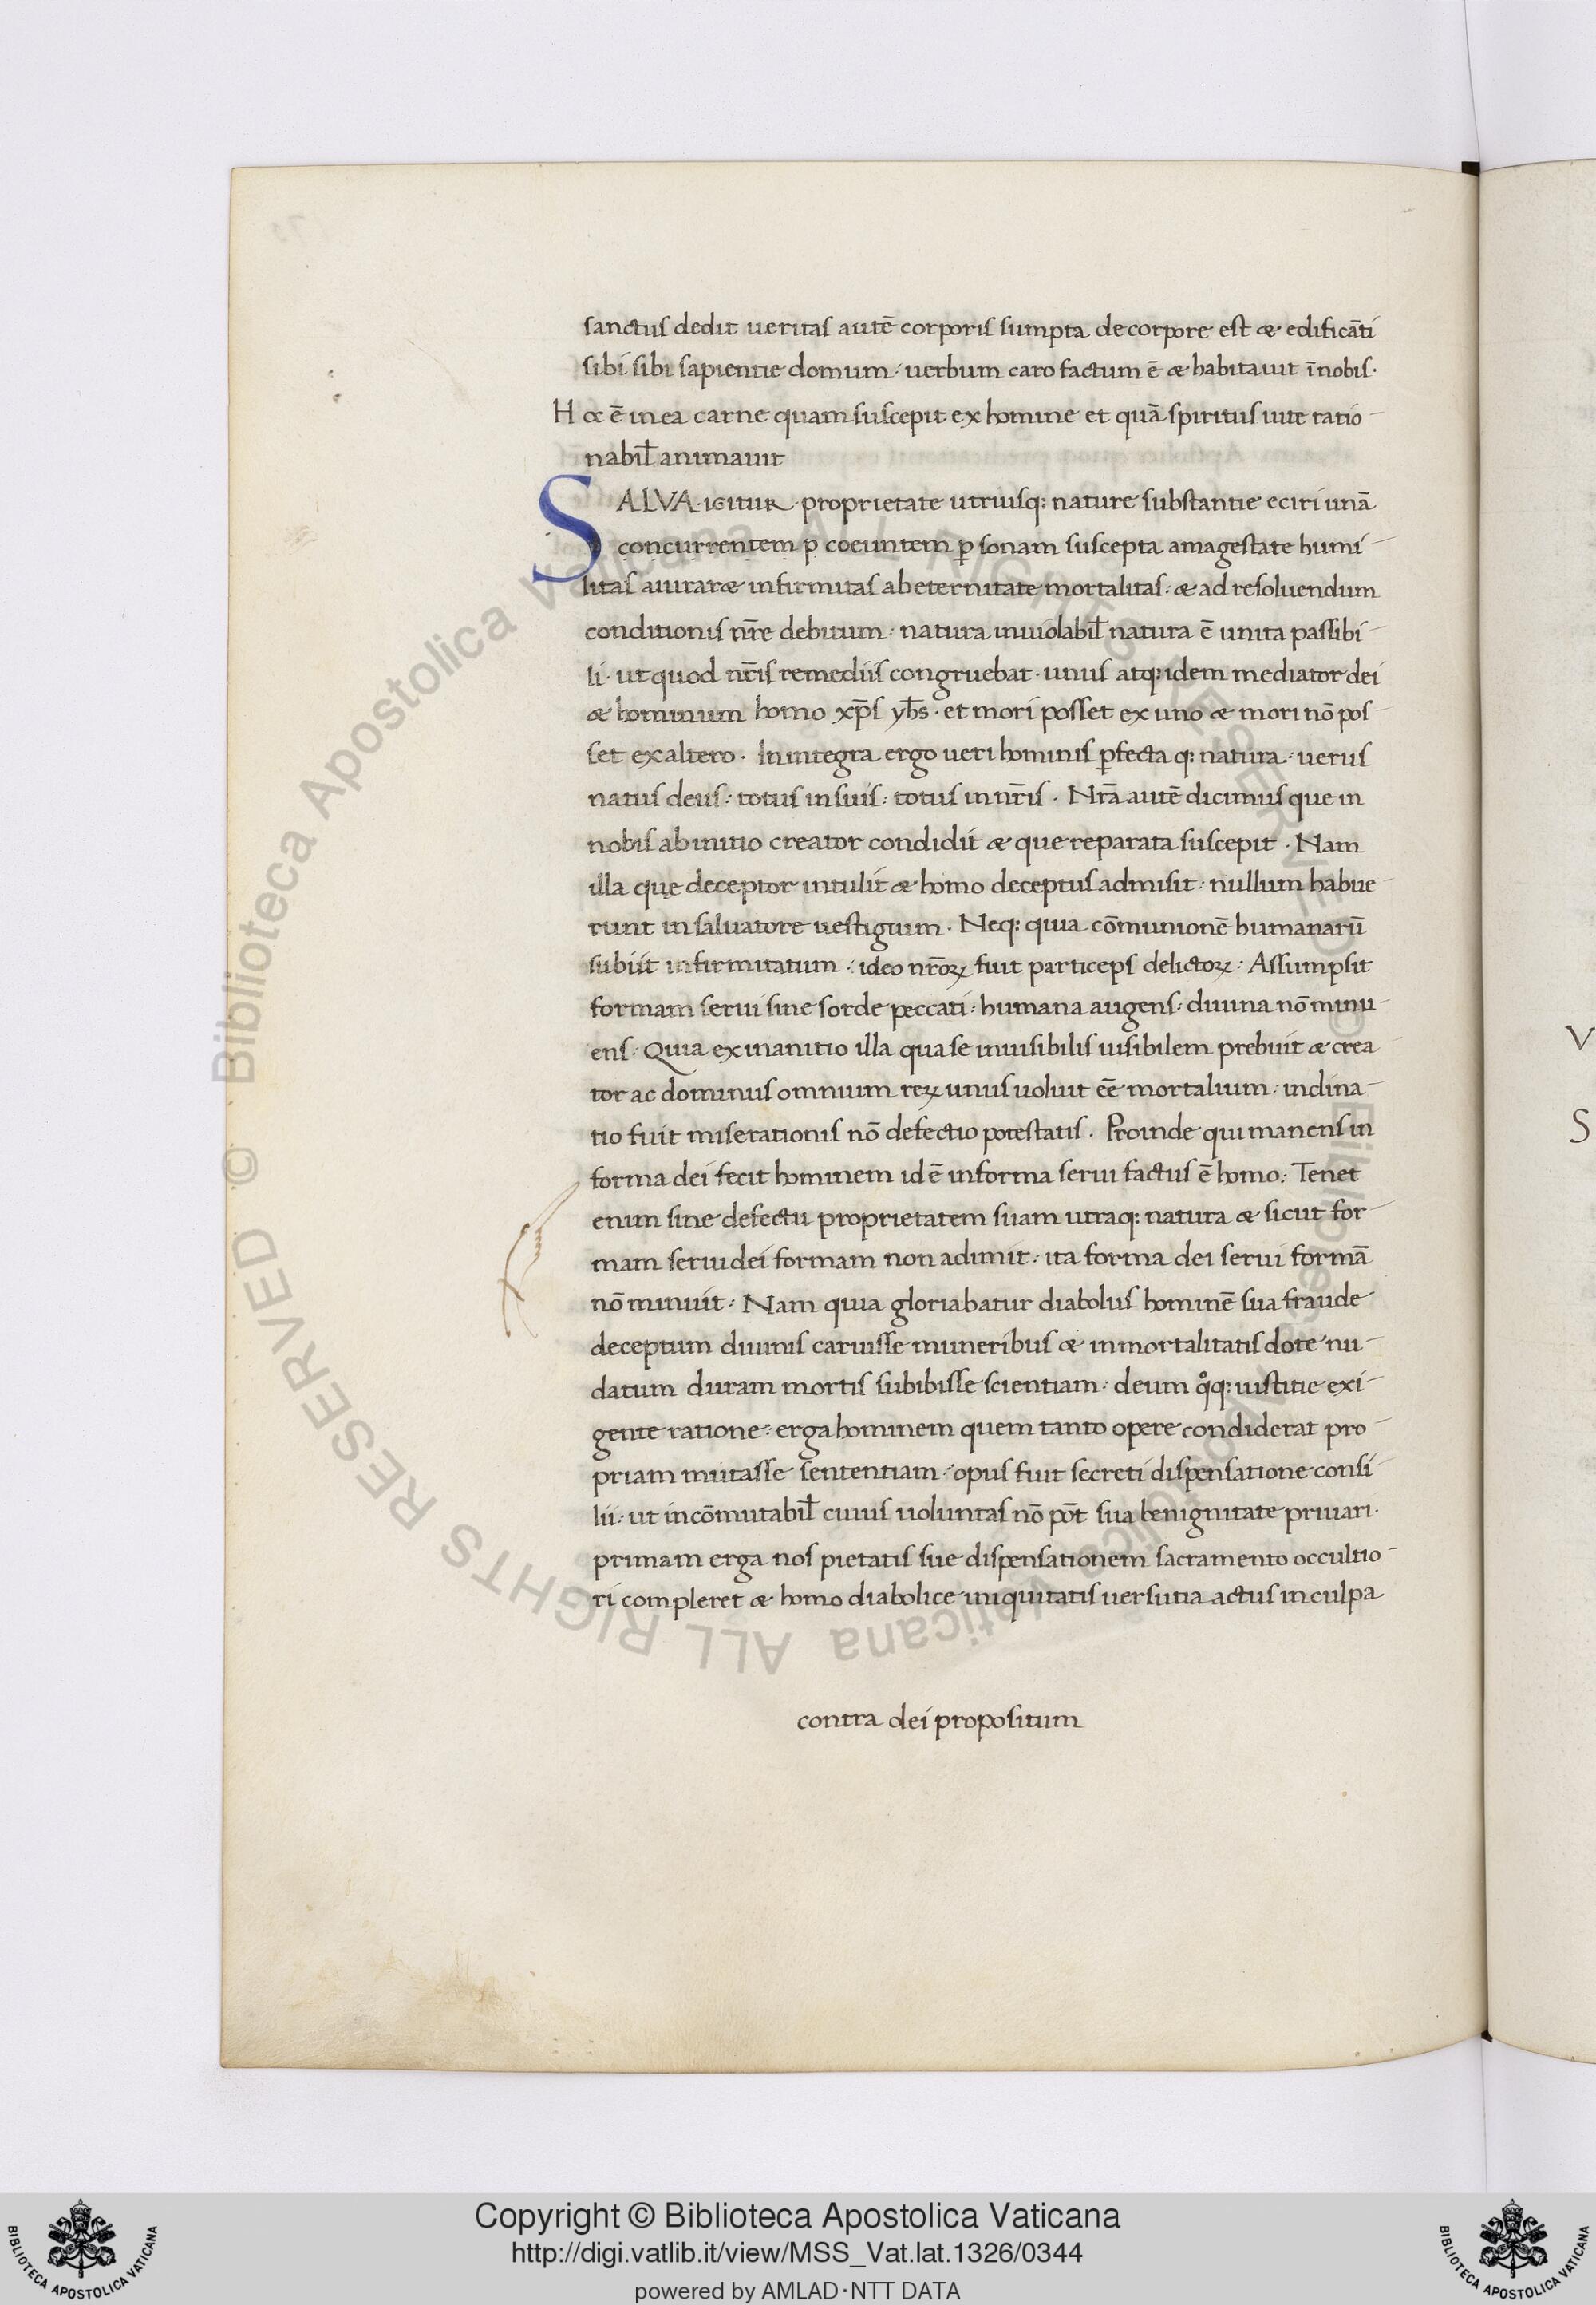 sanctus dedit ueritas autē corporis sumpta de corpore est & edificāti
sibi sibi sapientie domum: uerbum caro factum ē & habitauit ī nobis.
Hoc ē in ea carne quam suscepit ex homine et quā spiritus uite ratio-
nabił animauit
SALVA. igitur. proprietate utriusq: nature substantie eciri unā
concurrentem p coeuntem ꝑsonam suscepta amagestate humi-
litas auirar& infirmitas ab eternitate mortalitas: & ad resoluendum
conditionis nr̄e debitum: natura inuiolabił natura ē unita passibi-
li. ut quod nr̄is remediis congruebat. unus atq: idem mediator dei
& hominum homo xp̄s yħs. et mori posset ex uno & mori nō pos-
set ex altero. In integra ergo ueri hominis ꝑfecta q: natura: uerus
natus deus: totus in suis: totus in nr̄is. Nrā autē dicimus que in
nobis ab initio creator condidit & que reparata suscepit. Nam
illa que deceptor intulit & homo deceptus admisit: nullum habue-
runt in saluatore uestigium. Neq: quia cōmunionē humanarū
subiit infirmitatum: ideo nr̄oꝝ fuit particeps delictoꝝ: Assumpsit
formam serui sine sorde peccati: humana augens: diuina nō minu-
ens. Quia exinanitio illa qua se inuisibilis uisibilem prebuit & crea-
tor ac dominus omnium reꝝ unus uoluit eē mortalium: inclina-
tio fuit miserationis nō defectio potestatis. Proinde qui manens in
forma dei fecit hominem id ē in forma serui factus ē homo: Tenet
enim sine defectu proprietatem suam utraq: natura & sicut for-
mam serui dei formam non adimit: ita forma dei serui formā
nō minuit: Nam quia gloriabatur diabolus hominē sua fraude
deceptum diuinis caruisse muneribus & inmortalitatis dote nu-
datum duram mortis subibisse scientiam: deum qͦq: iustitie exi-
gente ratione: erga hominem quem tanto opere condiderat pro-
priam mutasse sententiam: opus fuit secreti dispensatione consi-
lii: ut incōmutabił cuius uoluntas nō pōt sua benignitate priuari.
primam erga nos pietatis sue dispensationem sacramento occultio-
ri compleret & homo diabolice iniquitatis uersutia actus in culpa
contra dei propositum
V
S
© Biblioteca Apostolica Vaticana ALL RIGHTS RESERVED © Biblioteca Apostolica Vaticana ALL RIGHTS RESERVED
Copyright © Biblioteca Apostolica Vaticana
http://digi.vatlib.it/view/MSS_Vat.lat.1326/0344
powered by AMLAD·NTT DATA
BIBLIOTECA APOSTOLICA VATICANA
BIBLIOTECA APOSTOLICA VATICANA